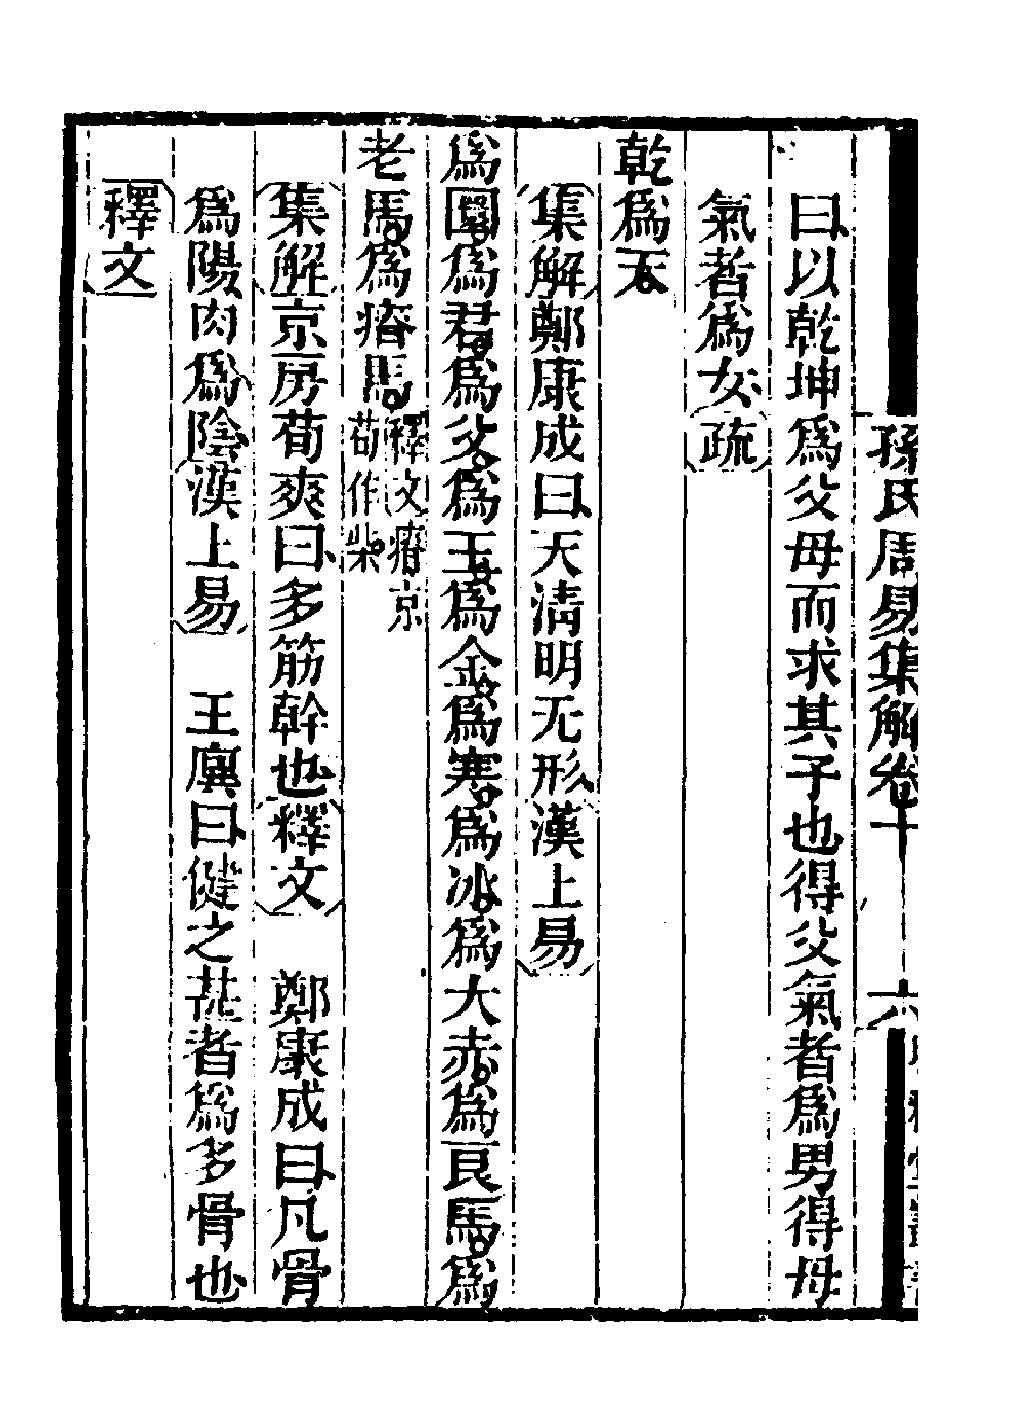 孫氏周易集解卷十 六
曰以乾坤爲父母而求其子也得父氣者爲男得母
氣者爲女疏
乾爲天
集解鄭康成曰天清明无形漢上易
爲圜爲君爲父爲玉爲金爲寒爲冰爲大赤爲良馬爲
老馬爲瘠馬釋文瘠京荀作柴
集解京房荀爽曰多筋幹也釋文 鄭康成曰凡骨
爲陽肉爲陰漢上易 王廙曰健之甚者爲多骨也
釋文